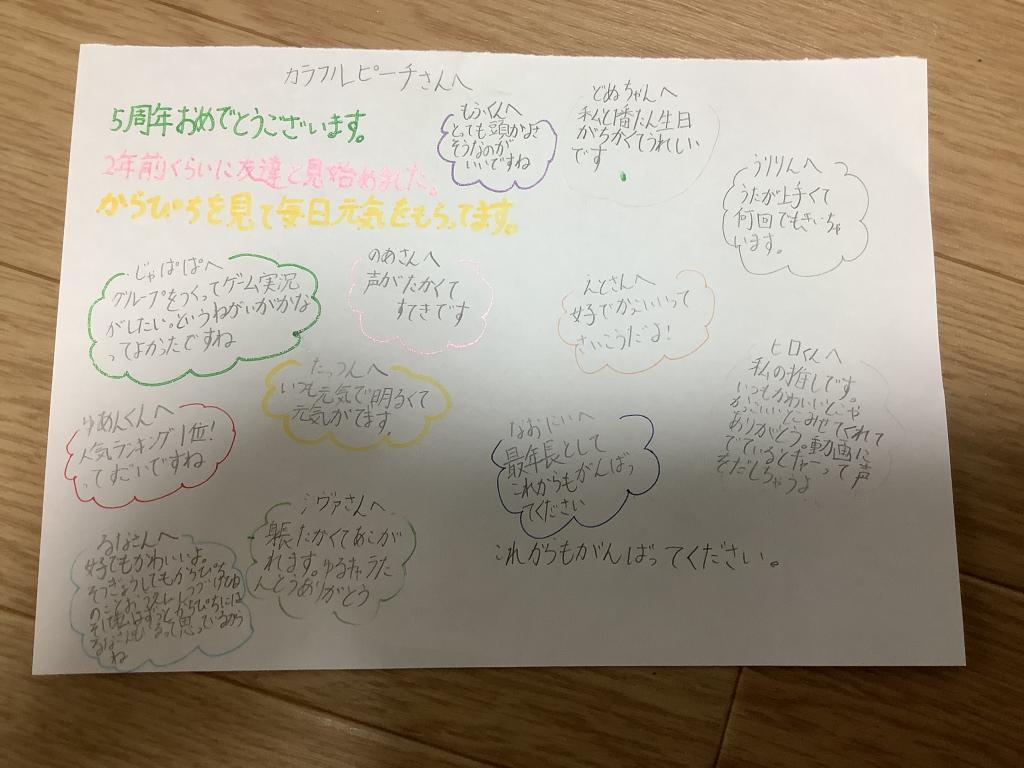 カラフルピーチさんへ
5周年おめでとうございます。
2年前くらいに友達と見始めました。
からぴちを見て毎日元気をもらってます。
もふくんへ
とっても頭がよさ
そうなのが
いいですね
どぬちゃんへ
私と1番たん生日
がちかくてうれしい
です
うりりんへ
うたが上手くて
何回でもきいちゃ
います。
じゃぱぱへ
グループをつくってゲーム実況
がしたい。というねがいがかな
ってよかったですね
のあさんへ
声がたかくて
すてきです
えとさんへ
好でかっこいいって
さいこうだよ!
ヒロくんへ
私の推しです。
いつもかわいいどにゃ
かっこいいどにみせてくれて
ありがとう。動画に
でているとキャーって声
をだしちゃうよ
たっつんへ
いつも元気で明るくて
元気がでます
ゆあんくんへ
人気ランキング1位!
ってすごいですね
なおにいへ
最年長として
これからもがんばっ
てください
シヴァさんへ
たかくてあこが
れます。ゆるキャラうた
んとうありがとう
るなさんへ
好でもかわいいよ。
そつぎょうしてもからぴちの
ことお
ね
これからもがんばってください。